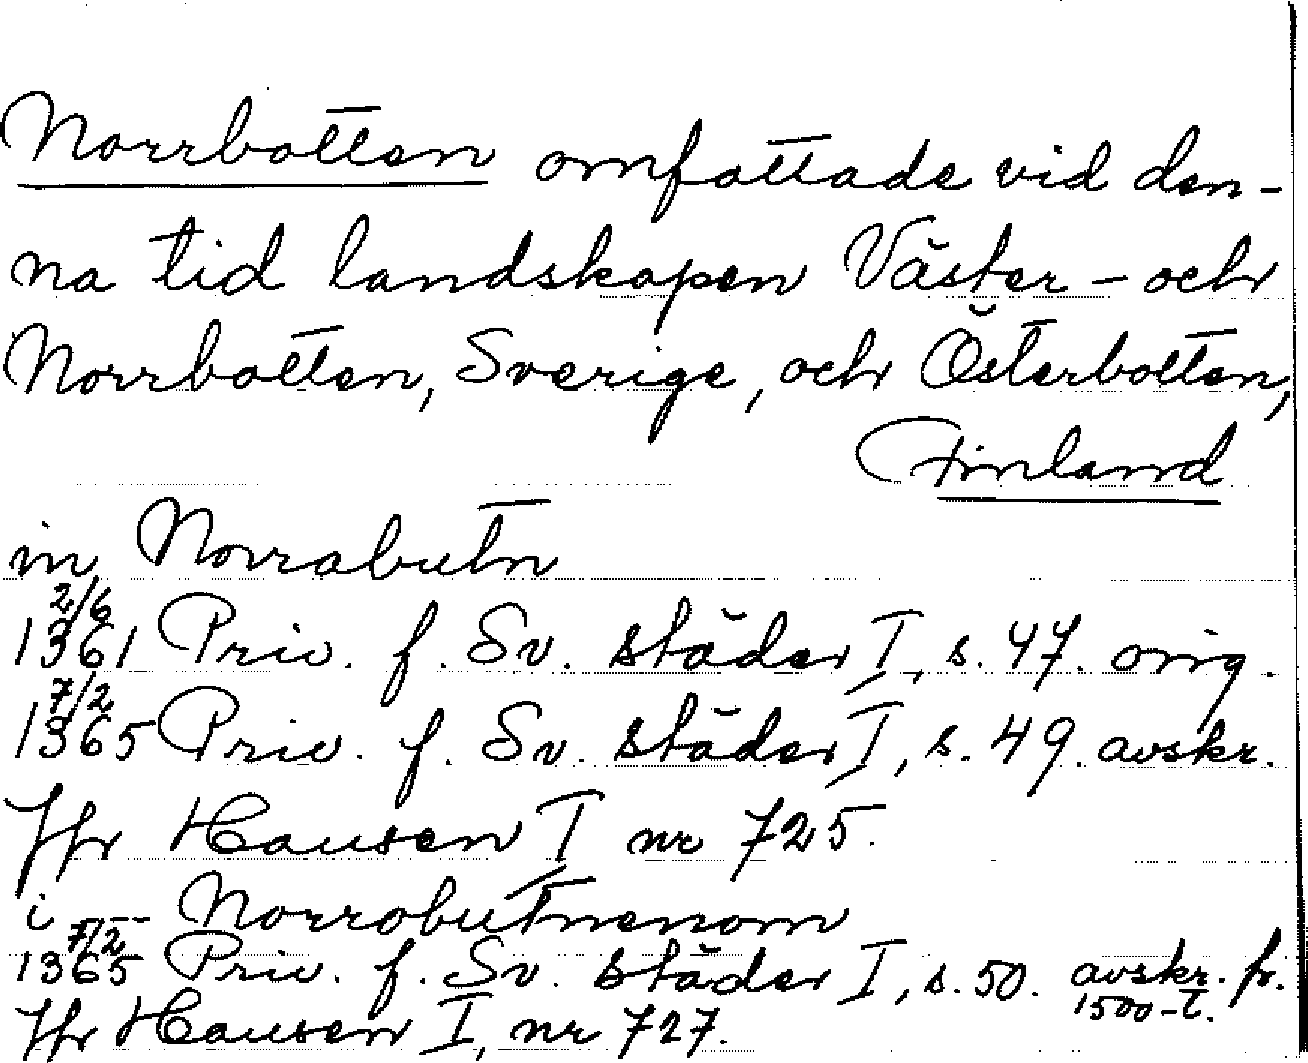 Norrbotten omfattade vid den-
na tid landskapen Väster- och
Norrbotten, Sverige, och Österbotten,
Finland
in Norrabutn
2/6
1361 Priv. f. Sv. städer I, s. 47. orig.
7/2
1365 Priv. f. Sv. städer I, s. 49. avskr.
Jfr Hausen I nr 725.
i -- Norrobutnenom
7/2
1365 Priv. f. Sv. städer I, s. 50. avskr. fr.
1500-t.
Jfr Hausen I, nr 727.